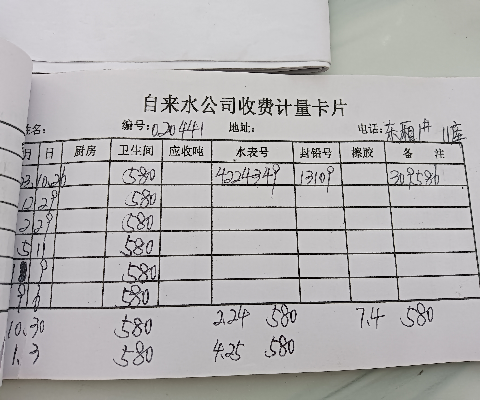 自来水公司收费计量卡片
姓名: 编号: 020441 地址: 电话: 东颐1# 11座
月 日 厨房 卫生间 应收吨 水表号 封铅号 擦胶 备 注
10.26 580 4224349 13109 309580
12 29 580
2 29 580
5 11 580
9 580
9 6 580
10.30 580 2.24 580 7.4 580
1.3 580 4.25 580